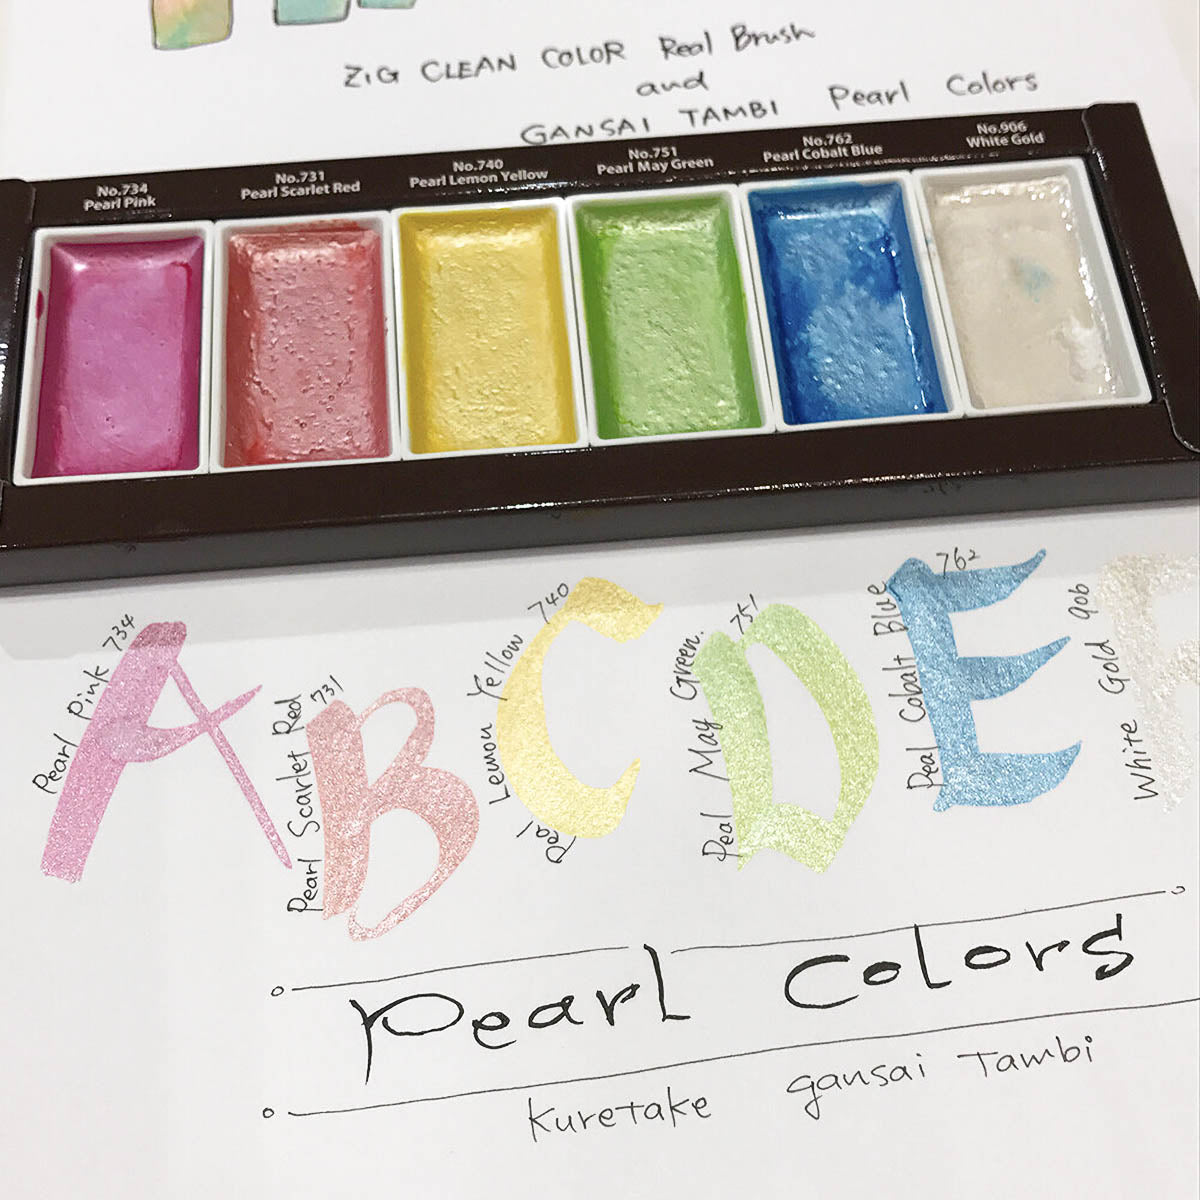 ZIG CLEAN COLOR Real Brush
and
GANSAI TAMBI Pearl Colors
No.734
Pearl Pink
No.731
Pearl Scarlet Red
No.740
Pearl Lemon Yellow
No.751
Pearl May Green
No.762
Pearl Cobalt Blue
No.906
White Gold
Pearl Pink 734
A
Pearl Scarlet Red 731
B
Peal Lemon Yellow 740
C
Peal May Green. 751
D
Peal Cobalt Blue 762
E
White Gold 906
Pearl Colors
Kuretake gansai Tambi